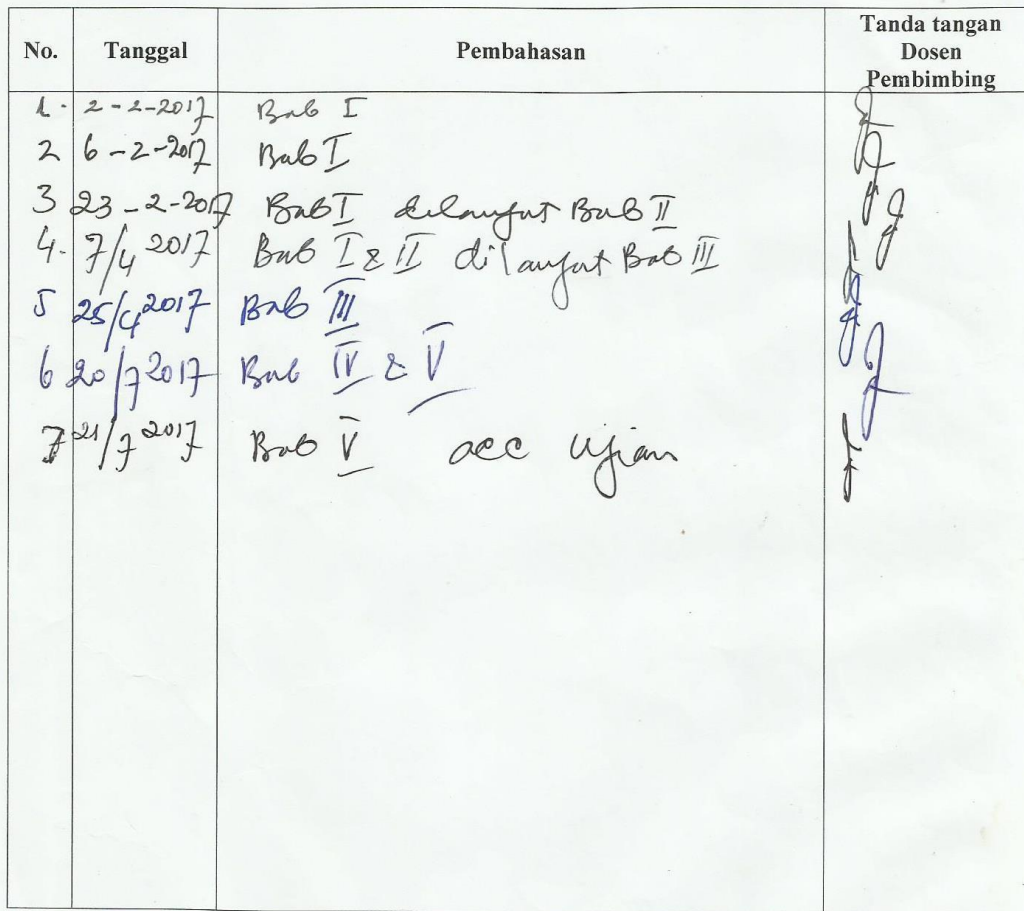 No. Tanggal Pembahasan Tanda tangan Dosen Pembimbing
1. 2-2-2017 Bab I
2 6-2-2017 Bab I
3 23-2-2017 Bab I dilanjut Bab II
4. 7/4 2017 Bab I & II dilanjut Bab III
5 25/4 2017 Bab III
6 20/7 2017 Bab IV & V
7 21/7 2017 Bab V acc ujian